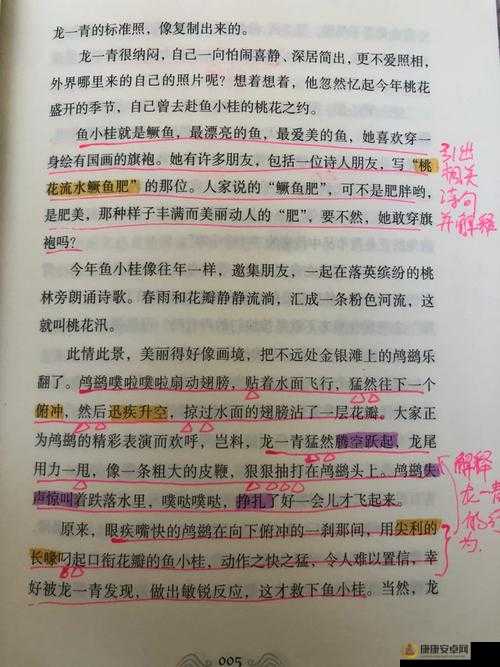 龙一青的标准照，像复制出来的。
龙一青很纳闷，自己一向怕闹喜静、深居简出，更不爱照相，
外界哪里来的自己的照片呢？想着想着，他忽然忆起今年桃花
盛开的季节，自己曾去赴鱼小桂的桃花之约。
鱼小桂就是鳜鱼，最漂亮的鱼，最爱美的鱼，她喜欢穿一
身绘有国画的旗袍。她有许多朋友，包括一位诗人朋友，写“桃
花流水鳜鱼肥”的那位。人家说的“鳜鱼肥”，可不是肥胖哟，
是肥美，那种样子丰满而美丽动人的“肥”，要不然，她敢穿旗
袍吗？
引出
相关
诗句
并解释
今年鱼小桂像往年一样，邀集朋友，一起在落英缤纷的桃
林旁朗诵诗歌。春雨和花瓣静静流淌，汇成一条粉色河流，这
就叫桃花汛。
此情此景，美丽得好像画境，把不远处金银滩上的鸬鹚乐
翻了。鸬鹚噗啦噗啦扇动翅膀，贴着水面飞行，猛然往下一个
俯冲，然后迅疾升空，掠过水面的翅膀沾了一层花瓣。大家正
为鸬鹚的精彩表演而欢呼，岂料，龙一青猛然腾空跃起，龙尾
用力一甩，像一条粗大的皮鞭，狠狠抽打在鸬鹚头上。鸬鹚失
声惊叫着跌落水里，噗哒噗哒，挣扎了好一会儿才飞起来。
解释
龙一青
为
原来，眼疾嘴快的鸬鹚在向下俯冲的一刹那间，用尖利的
长喙叼起口衔花瓣的鱼小桂，动作之快之猛，令人难以置信，幸
好被龙一青发现，做出敏锐反应，这才救下鱼小桂。当然，龙
005
康康安卓网